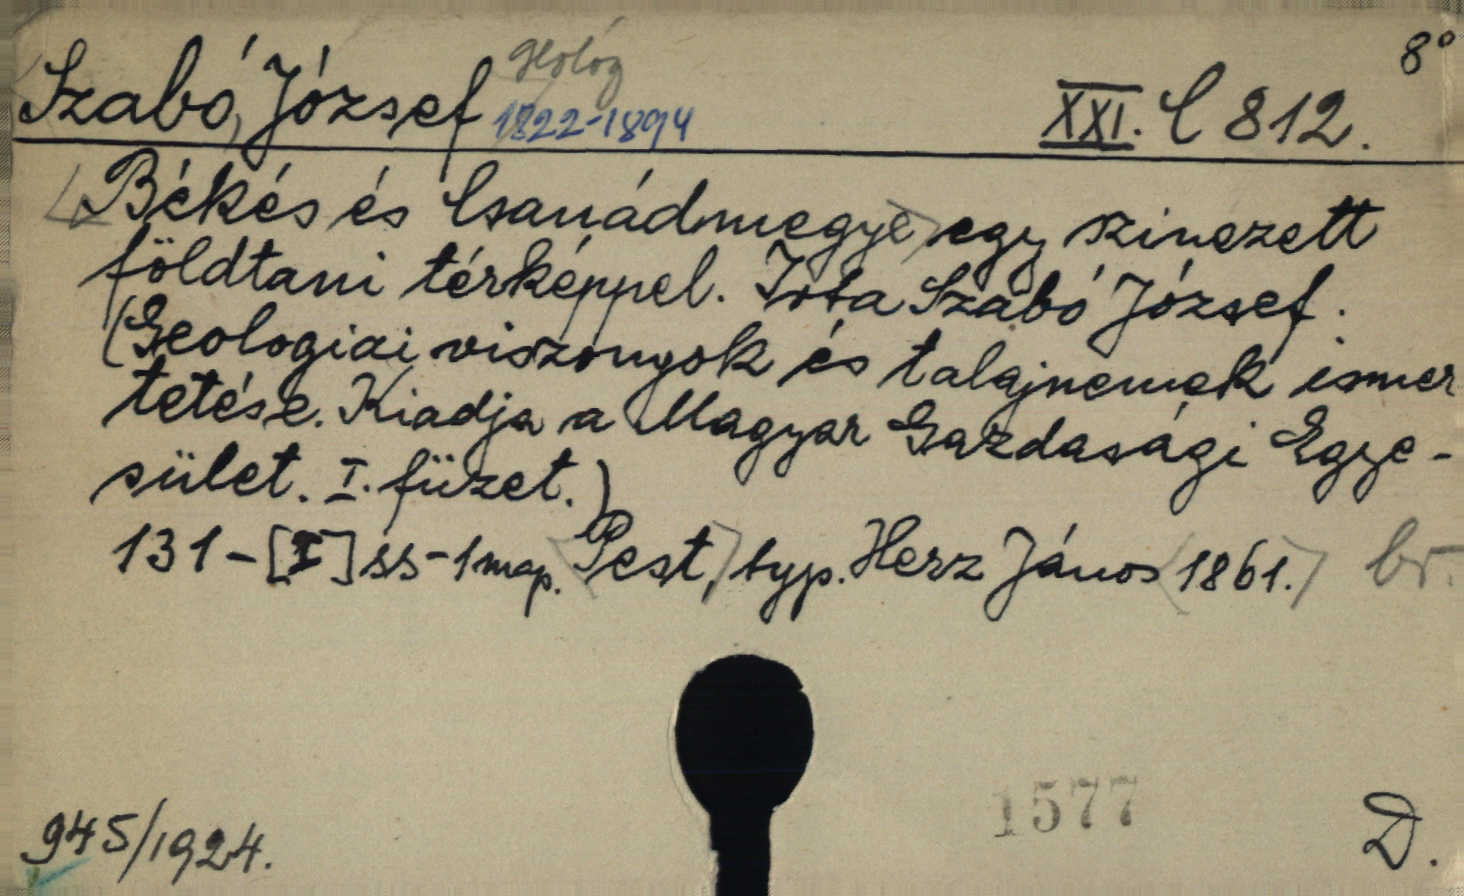 8°
Szabó, József geológ
1822-1894
XXI. C 812.
Békés és Csanádmegye egy szinezett
földtani térképpel. Irta Szabó József.
(Geologiai viszonyok és talajnemek ismer
tetése. Kiadja a Magyar Gazdasági Egye-
sület. I. füzet.)
131-[I] ss-1 map. Pest, typ. Herz János 1861. br.
1577
945/1924.
D.